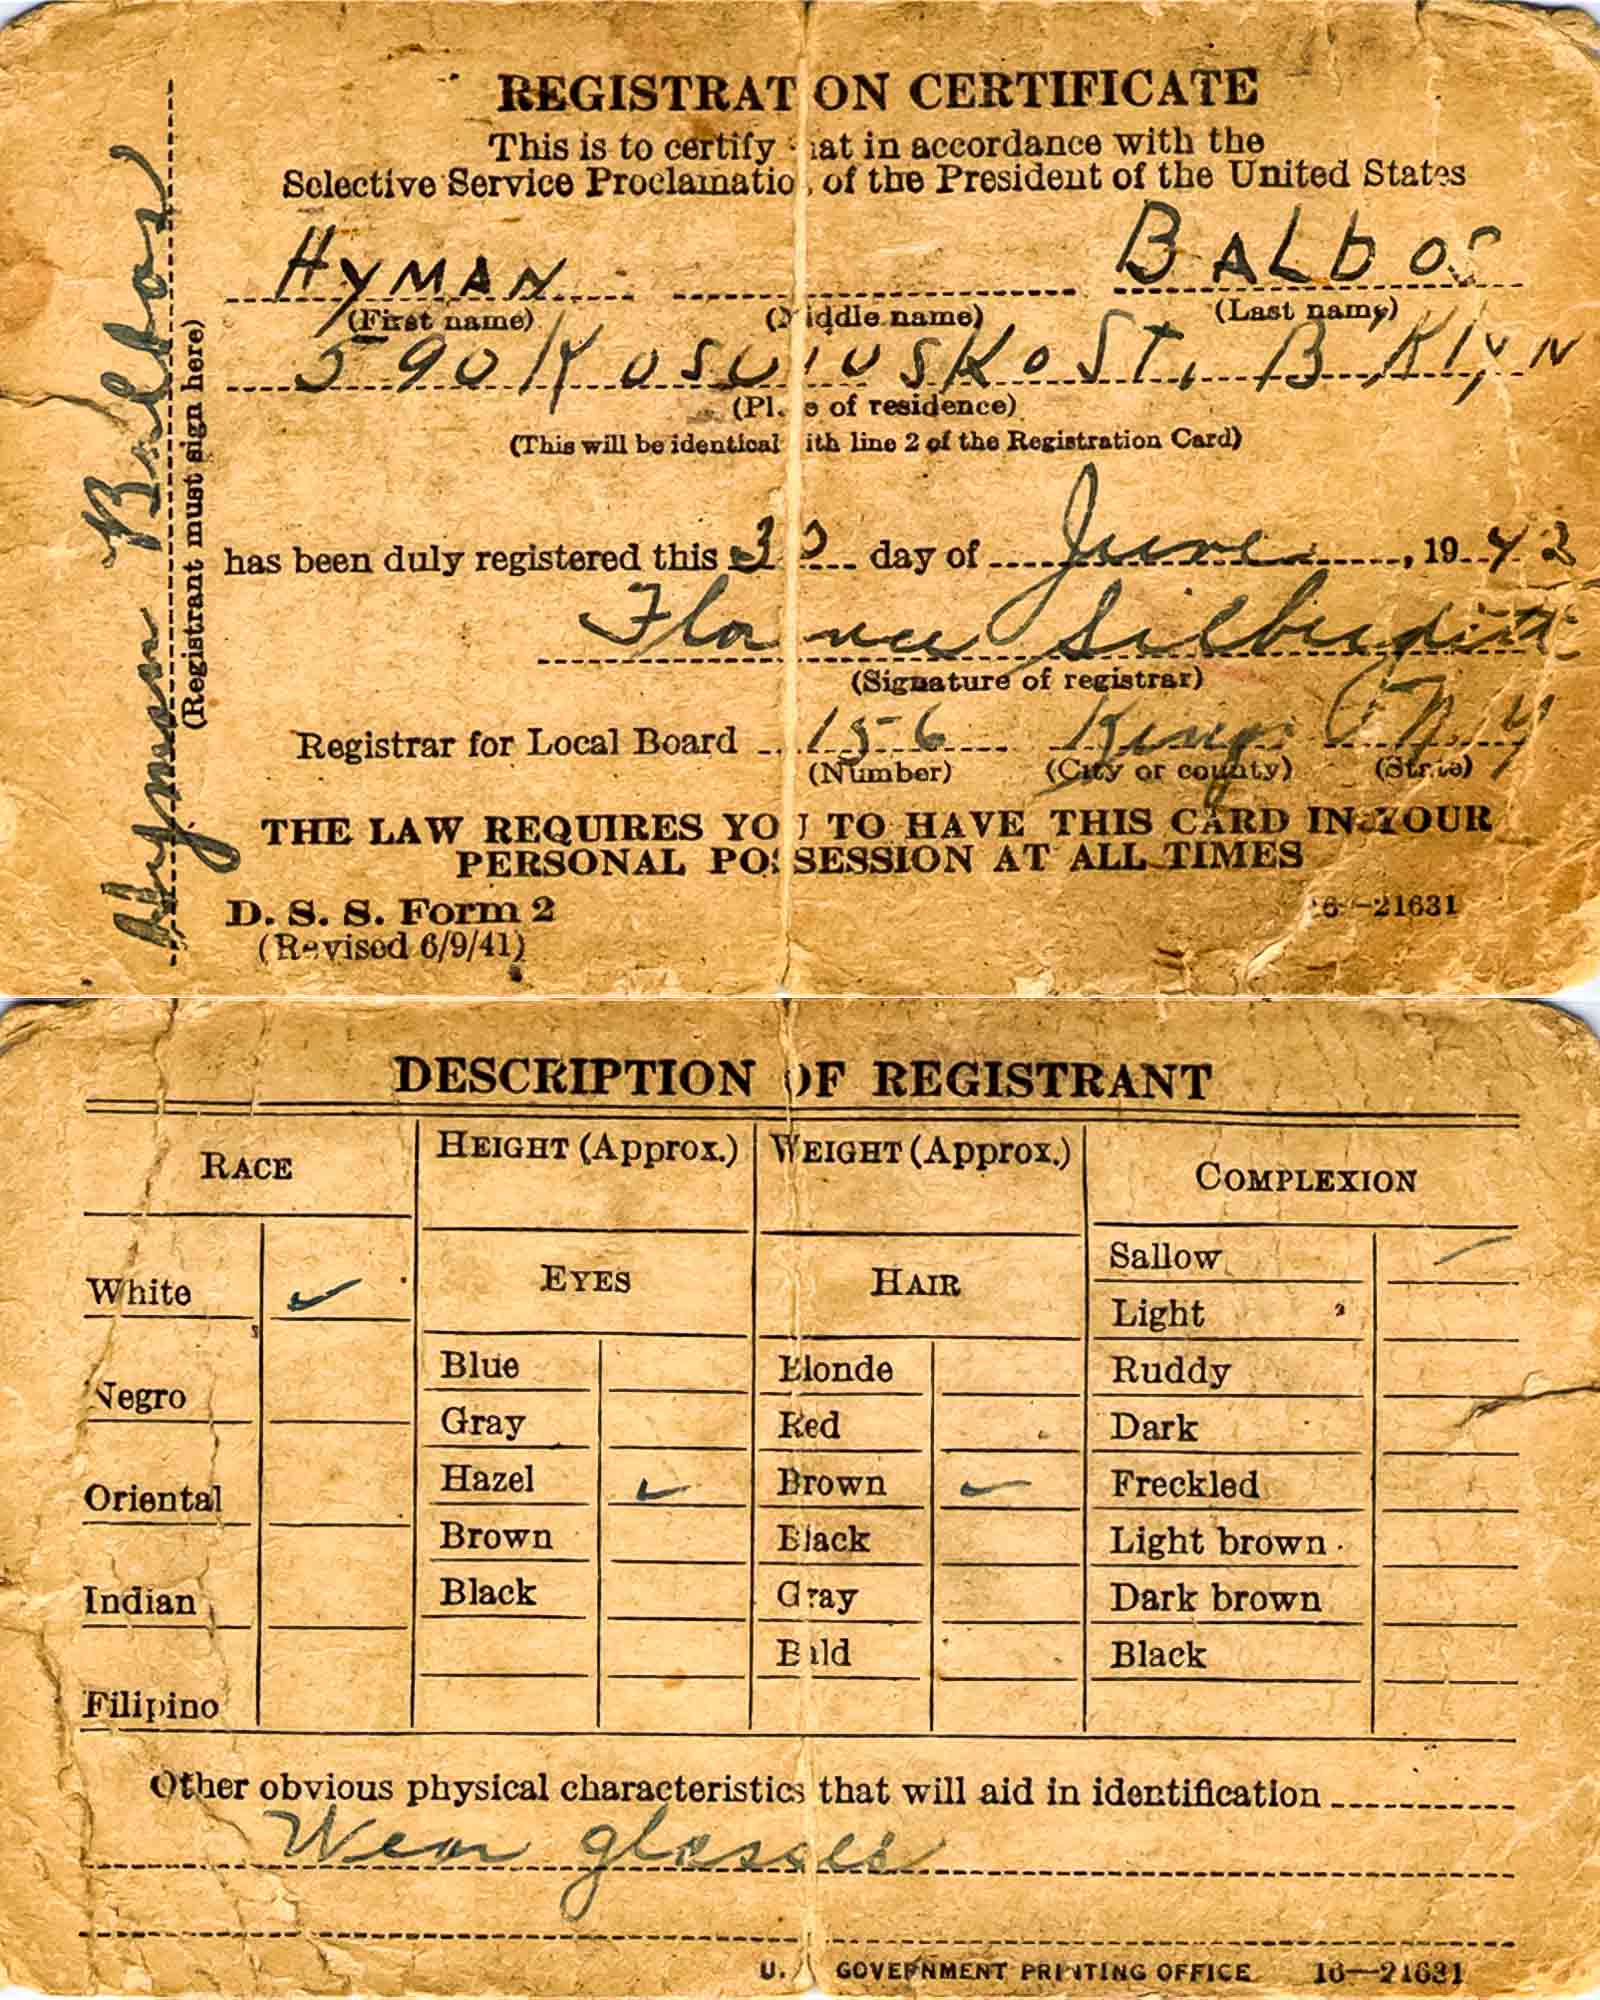 REGISTRATION CERTIFICATE
This is to certify that in accordance with the
Selective Service Proclamation of the President of the United States
HYMAN BALbOS
(First name) (Middle name) (Last name)
590 KOSCIUSKO ST. BKlyN
(Place of residence)
(This will be identical with line 2 of the Registration Card)
has been duly registered this 30 day of June, 1942
Florence
(Signature of registrar)
Registrar for Local Board 156 Kings N.Y
(Number) (City or county) (State)
THE LAW REQUIRES YOU TO HAVE THIS CARD IN YOUR
PERSONAL POSSESSION AT ALL TIMES
D. S. S. Form 2
(Revised 6/9/41)
16—21631
Hyman Balbos
(Registrant must sign here)
DESCRIPTION OF REGISTRANT
RACE
HEIGHT (Approx.)
WEIGHT (Approx.)
COMPLEXION
White ✓
Negro
Oriental
Indian
Filipino
EYES
Blue
Gray
Hazel ✓
Brown
Black
HAIR
Blonde
Red
Brown ✓
Black
Gray
Bald
Sallow
Light
Ruddy
Dark
Freckled
Light brown
Dark brown
Black
Other obvious physical characteristics that will aid in identification
Wear glasses
U. GOVERNMENT PRINTING OFFICE 16—21631